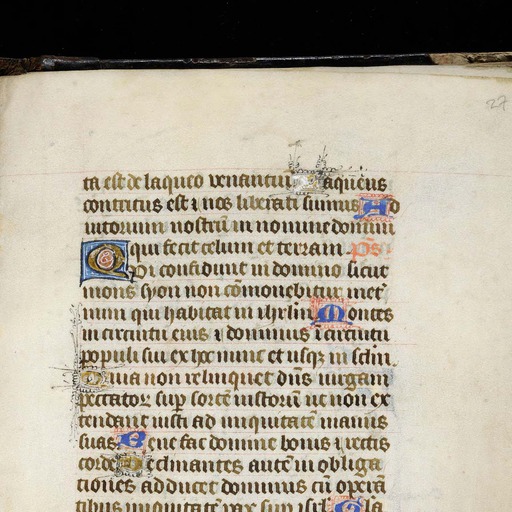 27
ta est de laqueo venantiu Laqueus
contritus est ⁊ nos liberati sumus Ad
iutorium nostru in nomine domini
qui fecit celum et terram ps
Qui confidunt in domino sicut
mons syon non commouebitur in et
num qui habitat in ihrlm Montes
in circuitu eius ⁊ dominus i circuitu
populi sui ex hoc nunc et usq in sclm
Quia non relinquet dns uirgam
peccator sup sorte iustoru ut non ex
tendant iusti ad iniquitate manus
suas Bene fac domine bonis ⁊ rectis
corde Declinantes aute in obliga
tiones adducet dominus cu opera
tibus iniquitate pax sup isrl Gla